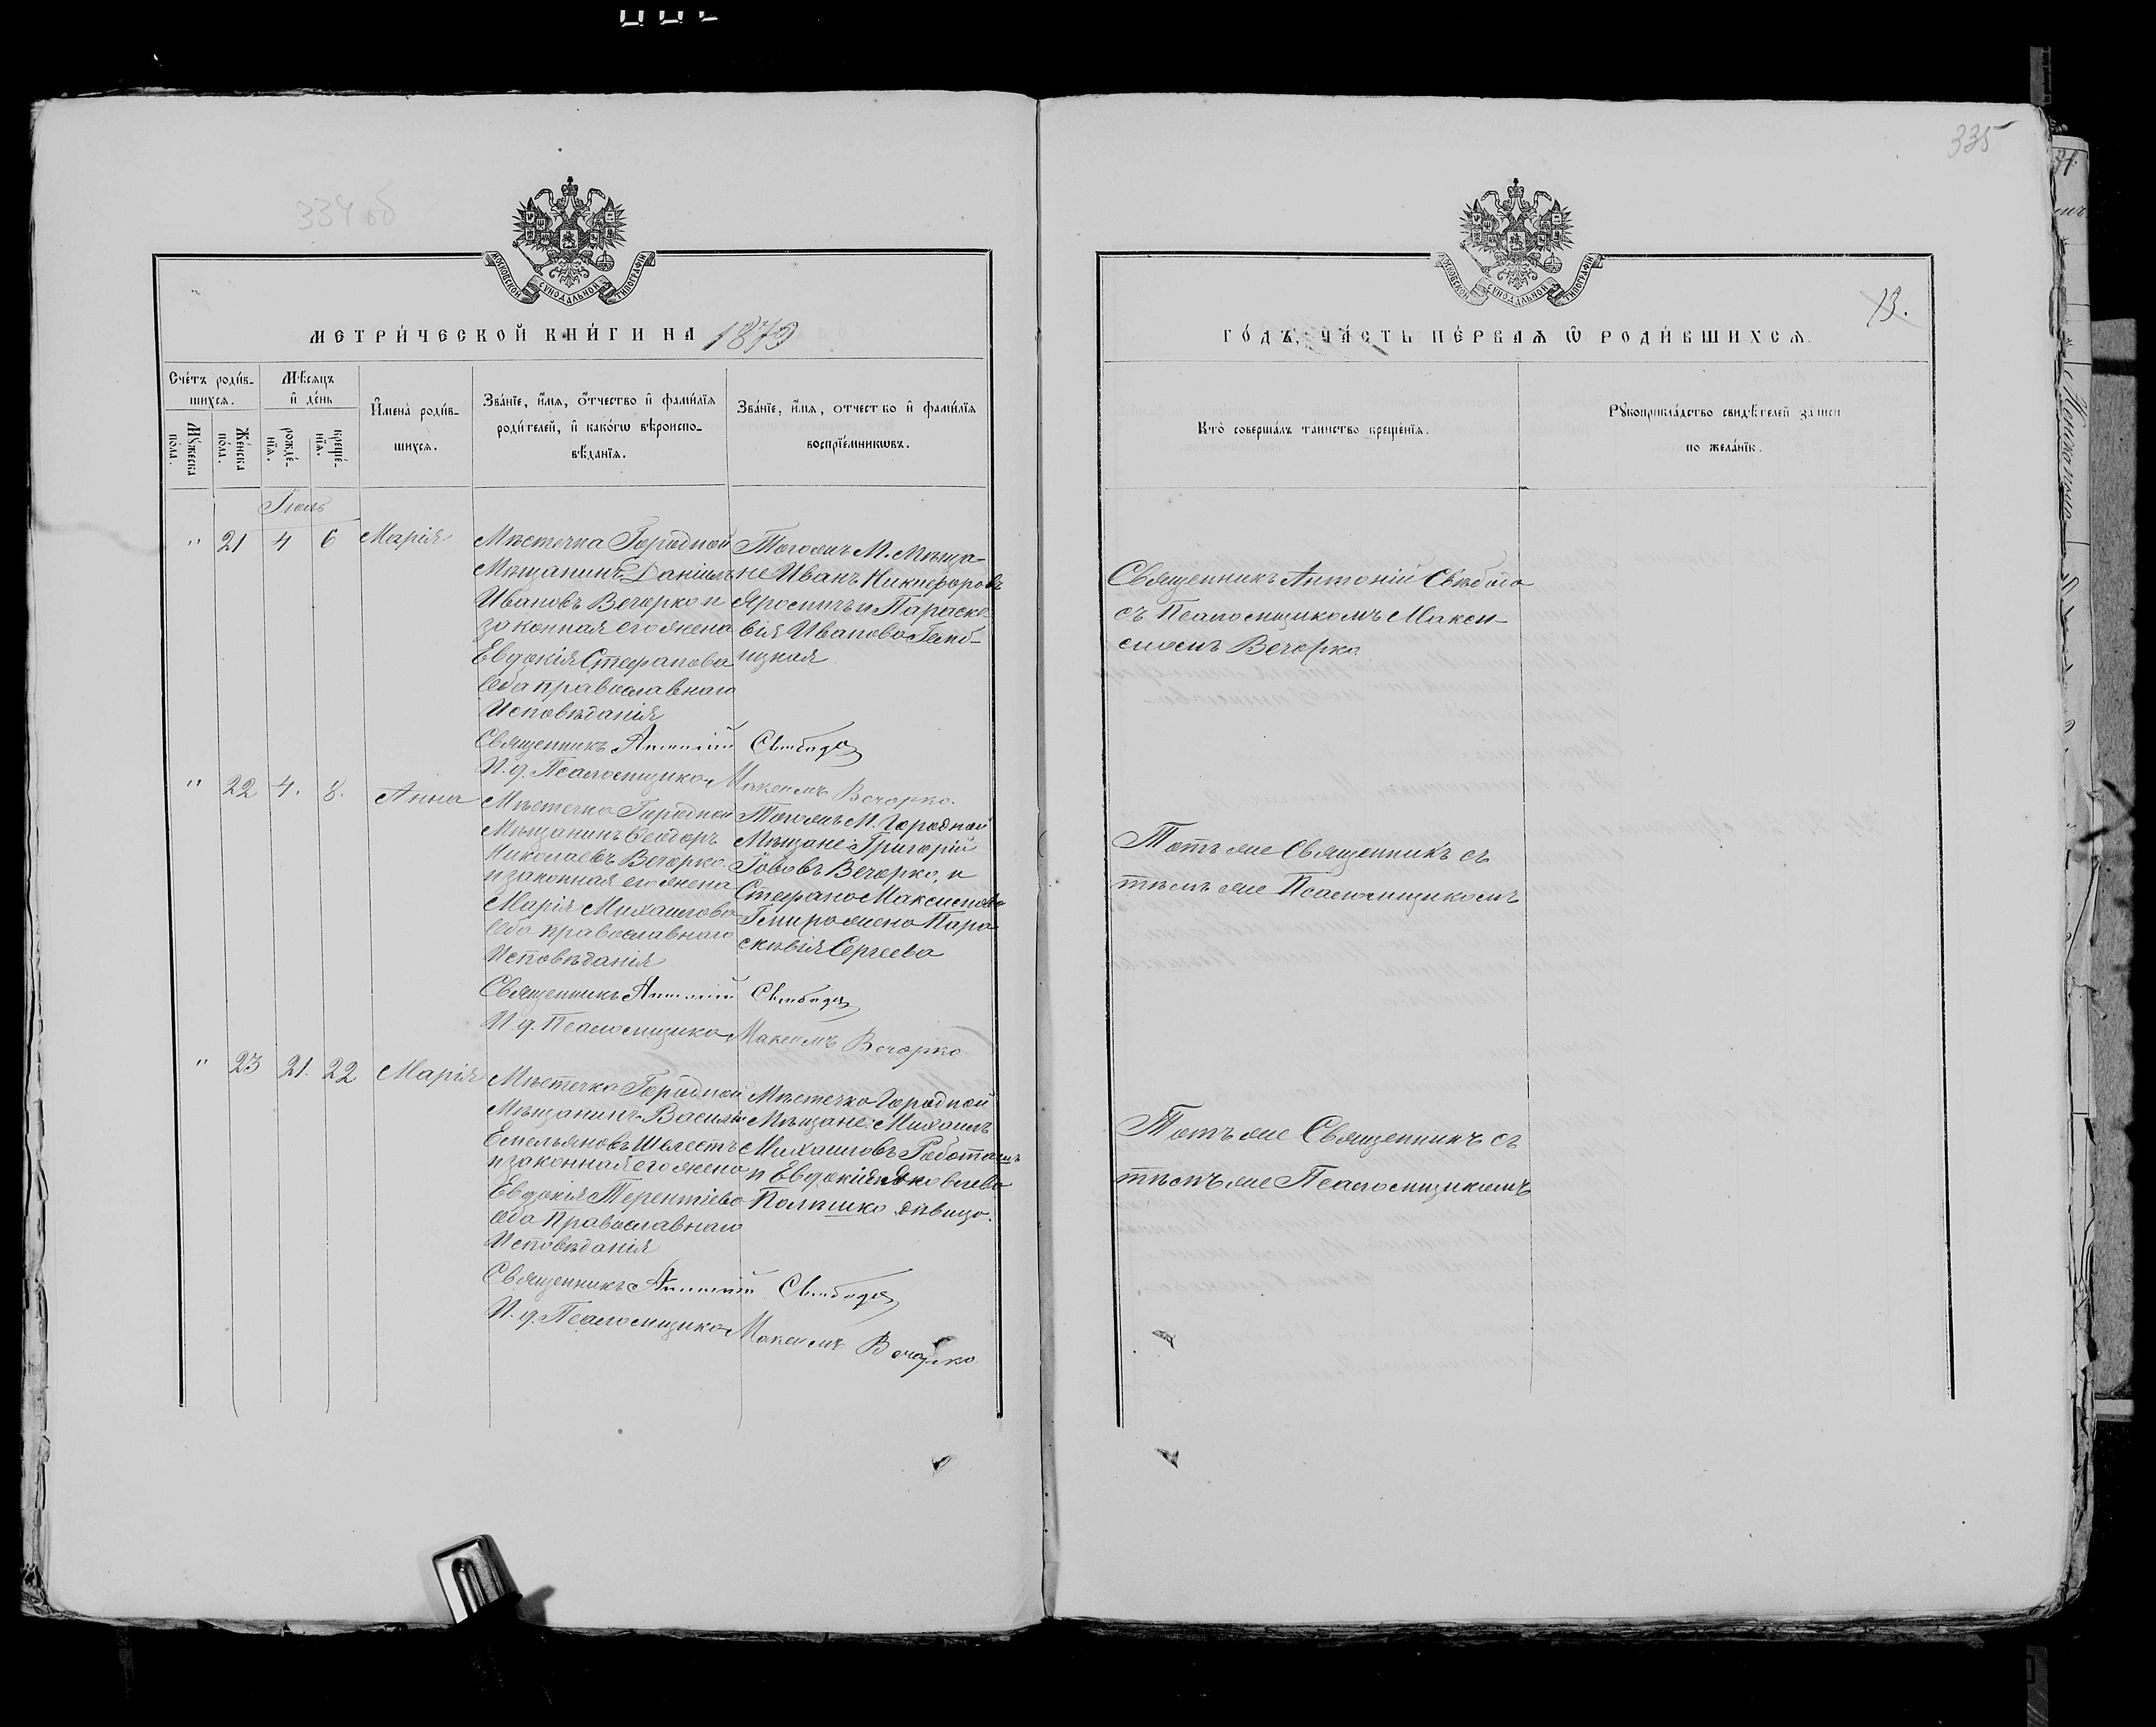 335
334 об
МОСКОВСКОЙ СУНОДАЛЬНОЙ ТИПОГРАФІИ
МЕТРИ́ЧЕСКОЙ КНИ́ГИ НА 1879
Сче́тъ роди́в-
шихсѧ.
Мꙋжеска
пола.
Же́нска
по́ла.
Мѣ́сѧцъ
и҆ де́нь
рожде́-
нїѧ.
креще́-
нїѧ.
И҆мена̀ роди́в-
шихсѧ.
Зва́нїе, и҆́мѧ, о҆́тчество и҆ фами́лїѧ
роди́телей, и҆ како́гѡ вѣроиспо-
вѣ́данїѧ.
Зва́нїе, и҆́мѧ, о҆тчество и҆ фами́лїѧ
воспрїе́мникѡвъ.
Іюль
" 21 4 6 Марія
Мѣстечка Городной
Мѣщанинъ Даніилъ
Ивановъ Вечорко и
законная его жена
Евдокія Стефанова
оба православнаго
Исповѣданія
Тогожъ М. Мѣща-
не Иванъ Никифоровъ
Ярошичъ и Параске-
вія Иванова
ицкая
Священникъ Антоній Свобода
И. д. Псаломщика Максимъ Вечорко.
" 22 4. 8. Анна
Мѣстечка Городной
Мѣщанинъ Ѳеодоръ
Николаевъ Вечорко
и законная его жена
Марія Михаилова
оба православнаго
Исповѣданія
Тогожъ М. Городной
Мѣщане Григорій
Іововъ Вечорко, и
Стефана Максимова
жена Пара-
скевія Сергеева
Священникъ Антоній Свобода
И. д. Псаломщика Максимъ Вечорко
" 23 21. 22 Марія
Мѣстечка Городной
Мѣщанинъ Василій
Емельяновъ Шелестъ
и законная его жена
Евдокія Терентіева
оба Православнаго
Исповѣданія
Мѣстечка Городной
Мѣщане Михаилъ
Михаиловъ
и Евдокія Яковлева
Полишко дѣвица.
Священникъ Антоній Свобода
И. д. Псаломщика Максимъ Вечорко
МОСКОВСКОЙ СУНОДАЛЬНОЙ ТИПОГРАФІИ
13.
ГО́ДЪ, ЧА́СТЬ ПЕ́РВАѦ Ѡ҆ РОДИ́ВШИХСѦ.
Кто̀ соверша́лъ та́инство креще́нїѧ.
Рꙋкоприкла́дство свидѣ́телей за́писи
по жела́нїю.
Священникъ Антоній Свобода
съ Псаломщикомъ Макси-
момъ Вечорко.
Тотъ же Священникъ съ
тѣмъ же Псаломщикомъ
Тотъ же Священникъ съ
тѣмъ же Псаломщикомъ